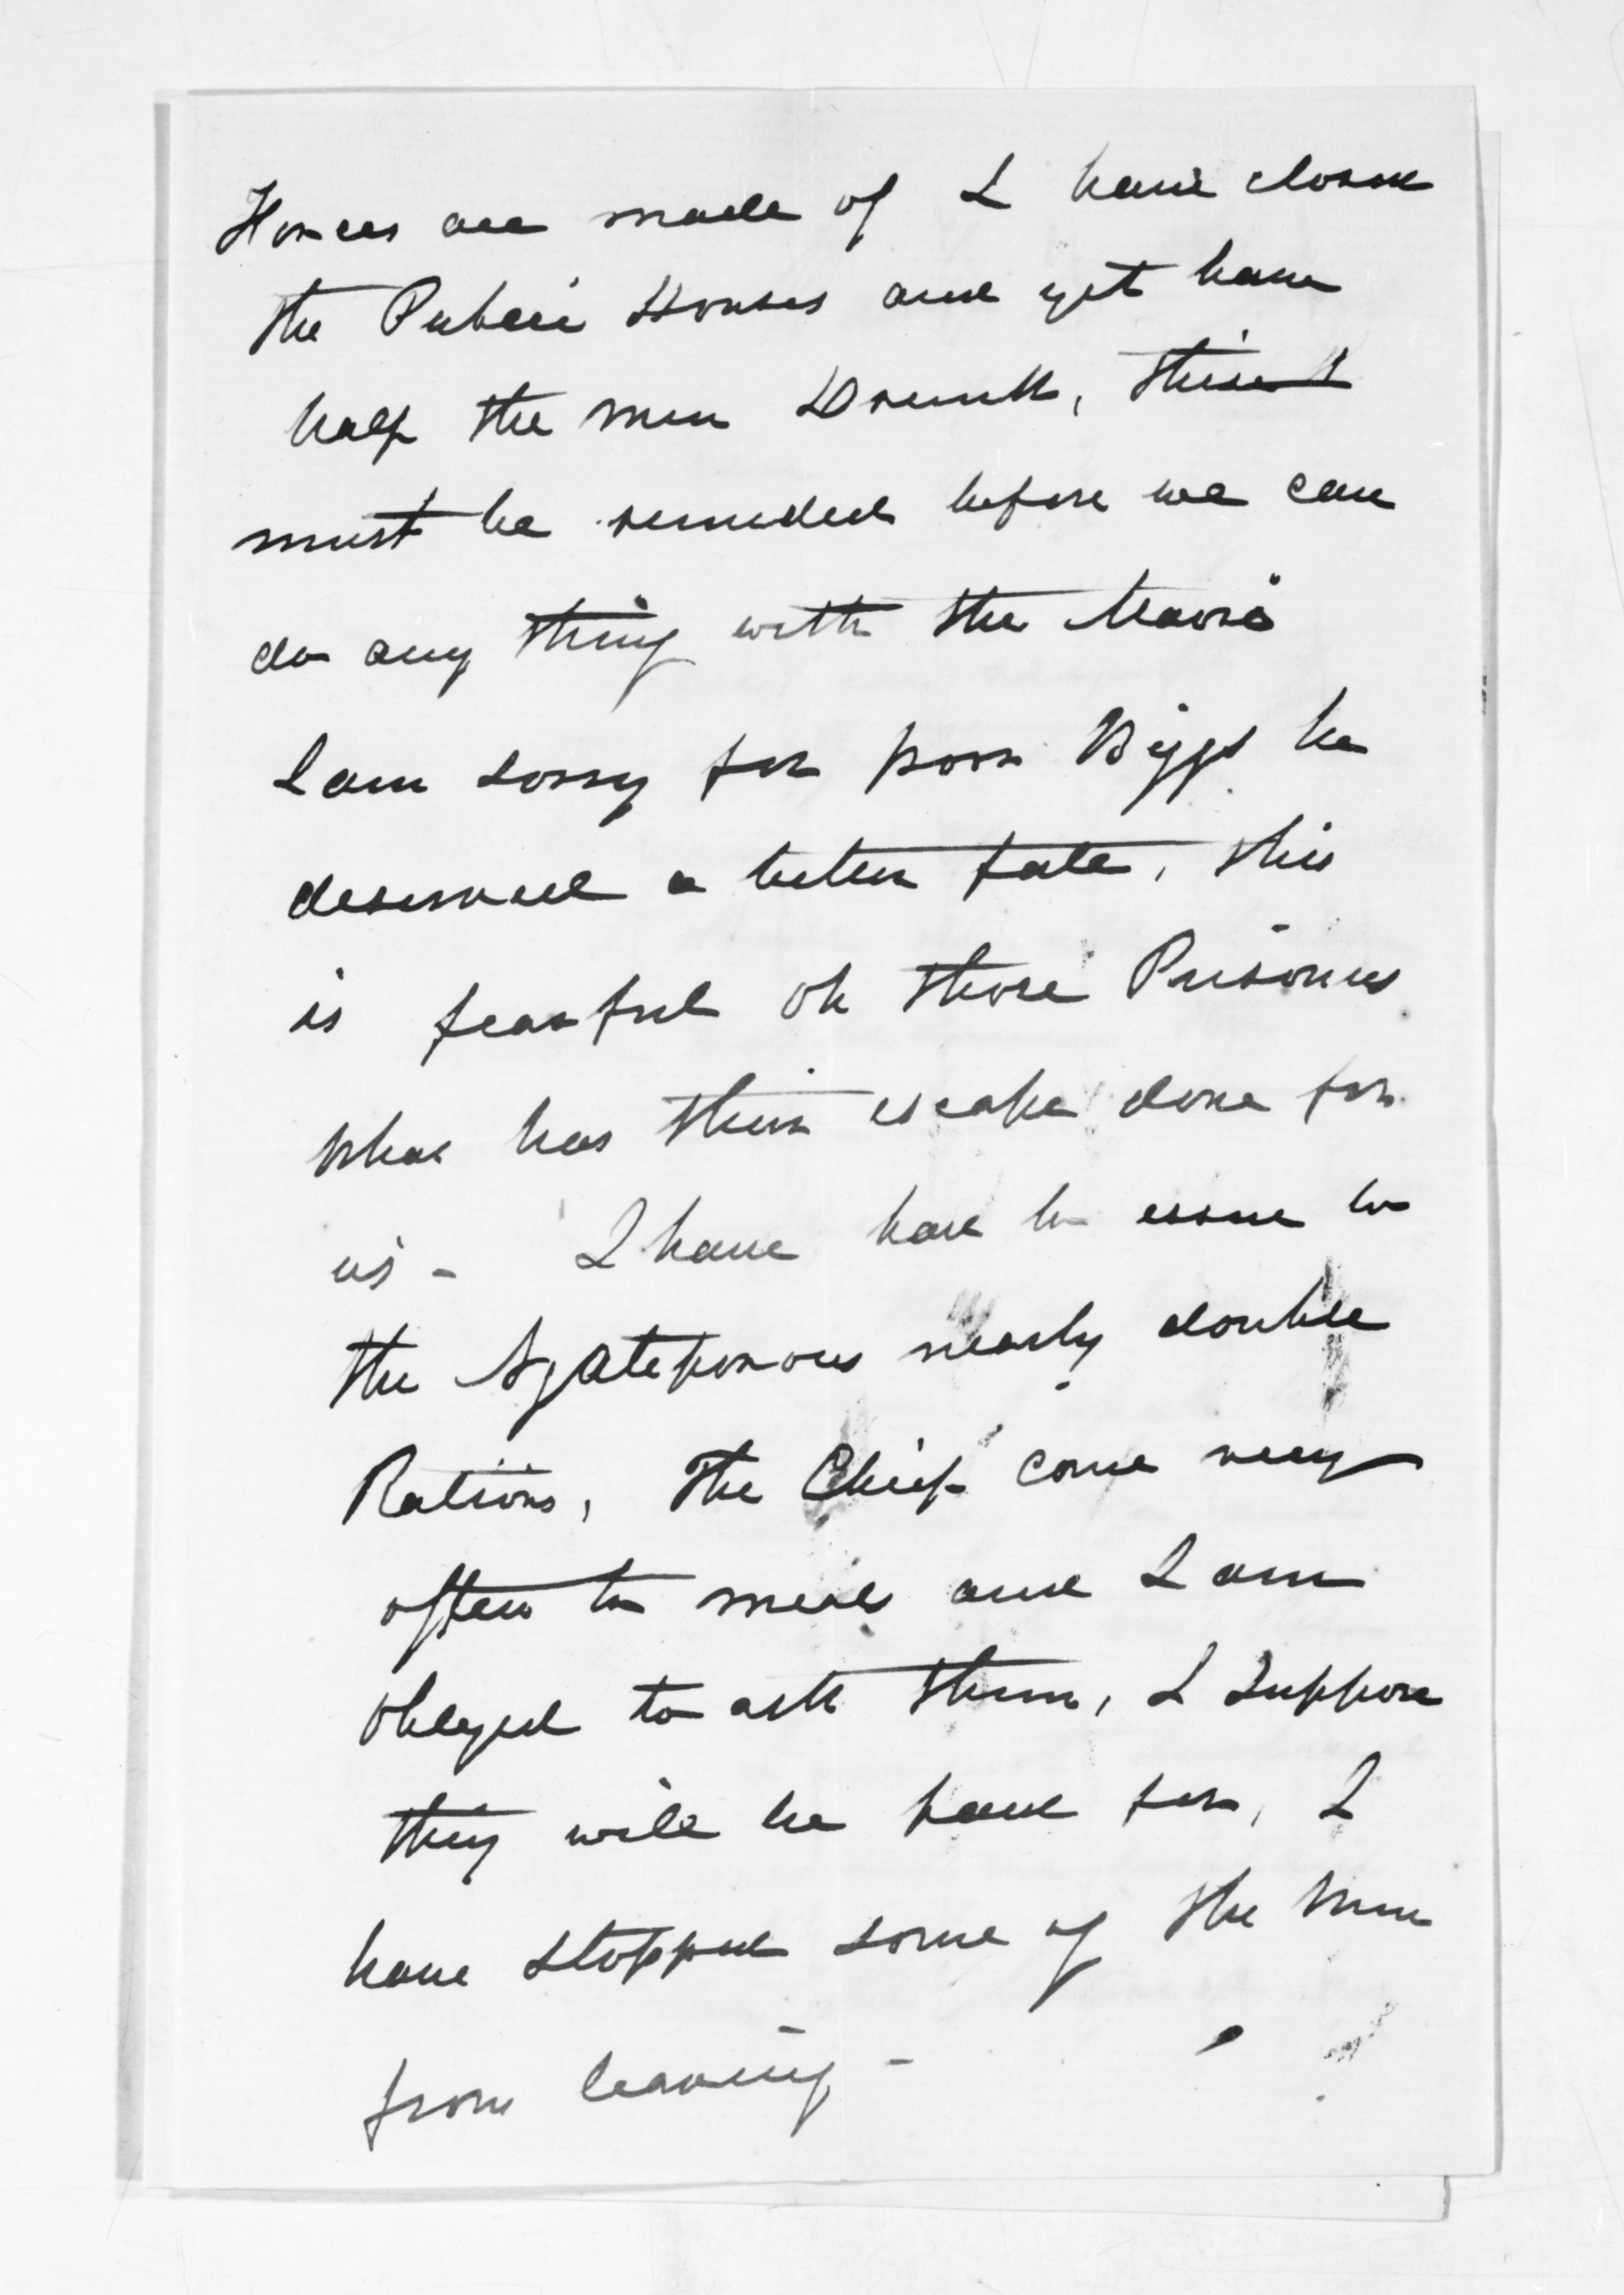 Horses are made of I have closed
the Public Houses and yet have
half the men Drunk, this
must be remeded before we can
do any thing with the Maoris
I am sorry for poor Biggs he
deserved a better fate, this
is fearful oh those Prisoners
what has their escape done for
us - I have had to issue to
the Ngateporous nearly double
Rations, The Chiefs come very
often to meals and I am
obleged to ask them, I Suppose
they will be paid for, I
have stopped some of the Men
from leaving -